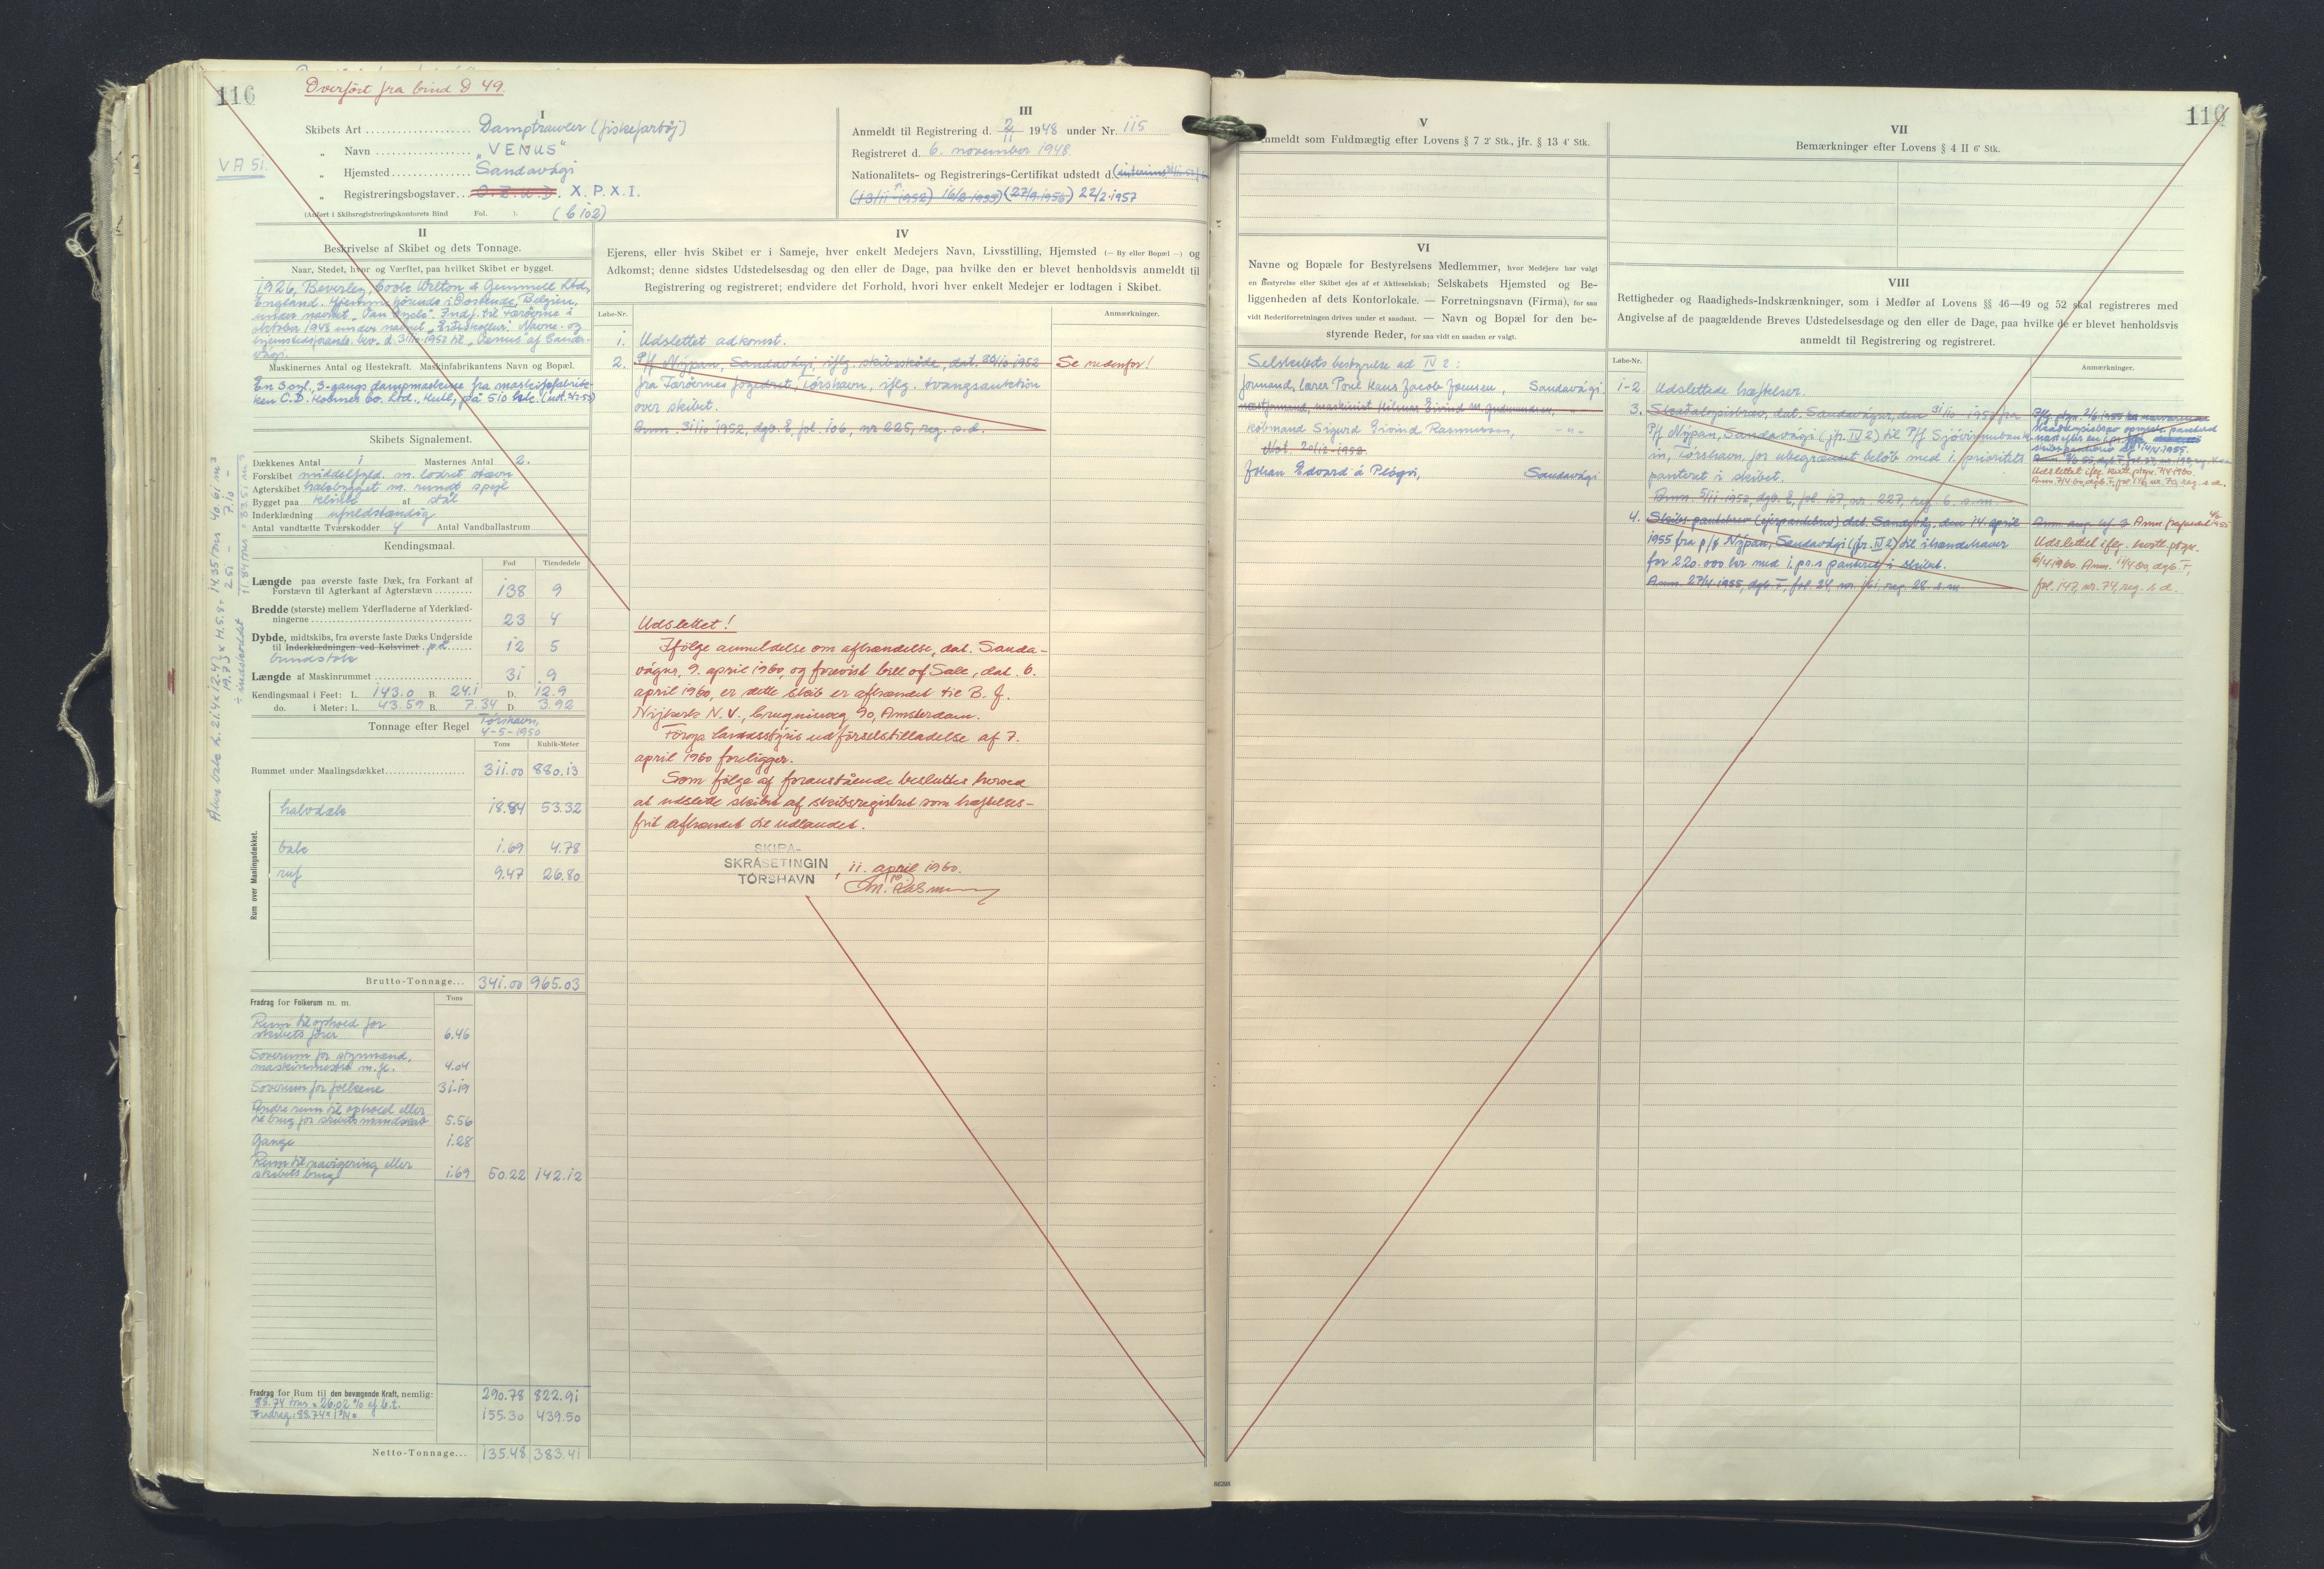 116
Overført fra bind D 49.
I
Skibets Art Damptrawler (fiskefartøj)
VA 51.
„ Navn "VENUS"
„ Hjemsted Sandavági
„ Registreringsbogstaver X. P. X. I.
(Anført i Skibsregistreringskontorets Bind Fol. ). (b 102)
III
Anmeldt til Registrering d. 2/11 1948 under Nr. 115
Registreret d. 6. november 1948.
Nationalitets- og Registrerings-Certifikat udstedt d.
(13/11 1952) 16/2 1953) (27/9.1956) 22/2.1957
II
Beskrivelse af Skibet og dets Tonnage.
Naar, Stedet, hvor og Værftet, paa hvilket Skibet er bygget.
1926, Beverley, Cook Welton & Gemmell Ltd,
England. Hjemmehørende i Oostende, Belgien,
oktober 1948 under navnet
Maskinernes Antal og Hestekraft. Maskinfabrikantens Navn og Bopæl.
En 3 cyl., 3-gangs dampmaskine fra maskinfabrik-
ken C.D. Holmes Co. Ltd., Hull, på 510 hk.
Skibets Signalement.
Dækkenes Antal 1 Masternes Antal 2.
Forskibet middelfyld. m. lodret stævn
Agterskibet halvbygget m. rundt spejl
Bygget paa klink af stål
Inderklædning ufuldstændig
Antal vandtætte Tværskodder 4 Antal Vandballastrum
Kendingsmaal.
Fod Tiendedele
Længde paa øverste faste Dæk, fra Forkant af
Forstævn til Agterkant af Agterstævn 138 9
Bredde (største) mellem Yderfladerne af Yderklæd-
ningerne 23 4
Dybde, midtskibs, fra øverste faste Dæks Underside
til Inderklædningen ved Kølsvinet på 12 5
bundstok
Længde af Maskinrummet 31 9
Kendingsmaal i Feet: L. 143.0 B. 24.1 D. 12.9
do. i Meter: L. 43.59 B. 7.34 D. 3.92
Tonnage efter Regel Tórshavn,
4-5-1950
Tons Kubik-Meter
Rummet under Maalingsdækket 311.00 880.13
Rum over Maalingsdækket.
halvdæk 18.84 53.32
bak 1.69 4.78
ruf 9.47 26.80
Brutto-Tonnage... 341.00 965.03
Fradrag for Folkerum m. m. Tons
Rum til ophold for
skibets fører 6.46
Soverum for styrmænd,
maskinmestre m.fl. 4.04
Soverum for folkene 31.19
Andre rum til ophold eller
til brug for skibets mandskab 5.56
Gange 1.28
Rum til navigering eller
skibets brug 1.69 50.22 142.12
290.78 822.91
Fradrag for Rum til den bevægende Kraft, nemlig:
88.74 tons = 26.02 % af b.t.
Fradrag: 88.74 x 1 3/4 = 155.30 439.50
Netto-Tonnage... 135.48 383.41
IV
Ejerens, eller hvis Skibet er i Sameje, hver enkelt Medejers Navn, Livsstilling, Hjemsted (— By eller Bopæl —) og
Adkomst; denne sidstes Udstedelsesdag og den eller de Dage, paa hvilke den er blevet henholdsvis anmeldt til
Registrering og registreret; endvidere det Forhold, hvori hver enkelt Medejer er lodtagen i Skibet.
Løbe-Nr. Anmærkninger.
1. Udslettet adkomst.
2. P/f Nýpan, Sandavági, iflg. skibsskøde, dat. 30/10 1952 Se nedenfor!
fra Færøernes fogedret, Tórshavn, iflg. tvangsauktion
over skibet.
Anm. 31/10 1952, dgb. E, fol. 106, nr 225, reg. s. d.
Udslettet!
Ifølge anmeldelse om afhændelse, dat. Sanda-
vágur, 9. april 1960, og forevist bill of Sale, dat. 6.
april 1960, er dette skib er afhændet til B. J.
Nijkerk N.V., Cruquiusweg 90, Amsterdam.
Føroya landsstýris udførselstilladelse af 7.
april 1960 foreligger.
Som følge af foranstående besluttes herved
at udslette skibet af skibsregistret som hæftelses-
frit afhændet til udlandet.
SKIPA-
SKRÁSETINGIN
TÓRSHAVN
, 11. april 1960.
116
V
Anmeldt som Fuldmægtig efter Lovens § 7 2' Stk., jfr. § 13 4' Stk.
VI
Navne og Bopæle for Bestyrelsens Medlemmer, hvor Medejere har valgt
en Bestyrelse eller Skibet ejes af et Aktieselskab; Selskabets Hjemsted og Be-
liggenheden af dets Kontorlokale. — Forretningsnavn (Firma), for saa
vidt Rederiforretningen drives under et saadant. — Navn og Bopæl for den be-
styrende Reder, for saa vidt en saadan er valgt.
Selskabets bestyrelse ad IV 2:
formand, lærer Poul Hans Jacob Joensen, Sandavági
købmand Sigurd Eivind Rasmussen, - " -
Not. 20/12-1952.
Johan Edvard á Plógv, Sandavági
VII
Bemærkninger efter Lovens § 4 II 6' Stk.
VIII
Rettigheder og Raadigheds-Indskrænkninger, som i Medfør af Lovens §§ 46—49 og 52 skal registreres med
Angivelse af de paagældende Breves Udstedelsesdage og den eller de Dage, paa hvilke de er blevet henholdsvis
anmeldt til Registrering og registreret.
Løbe-Nr. Anmærkninger.
1-2 Udslettede hæftelser.
3. Skadesløsbrev, dat. Sandavágur, den 31/10 1952 fra
P/f Nýpan, Sandavági (jfr. IV 2) til P/f Sjóvinnubank-
in, Tórshavn, for ubegrænset beløb med 1. prioritets
panteret i skibet.
Anm. 5/11 1952, dgb. E, fol. 107, nr. 227, reg. 6. s. m.
Udslettet iflg. kvitt. påtgn. 7/4 1960.
4. Skibspantebrev (ejerpantebrev) dat. Sandavág, den 14. april
1955 fra p/f Nýpan, Sandavági (jfr. IV 2) til ihændehaver
for 220.000 kr med 1. pr.s panteret i skibet.
Anm. 27/4 1955, dgb. F, fol. 24, nr. 161, reg. 28. s. m.
Udslettet iflg. kvitt. påtgn.
6/4 1960. Anm. 11/4 60, dgb. F,
fol. 147, nr. 74, reg. s. d.